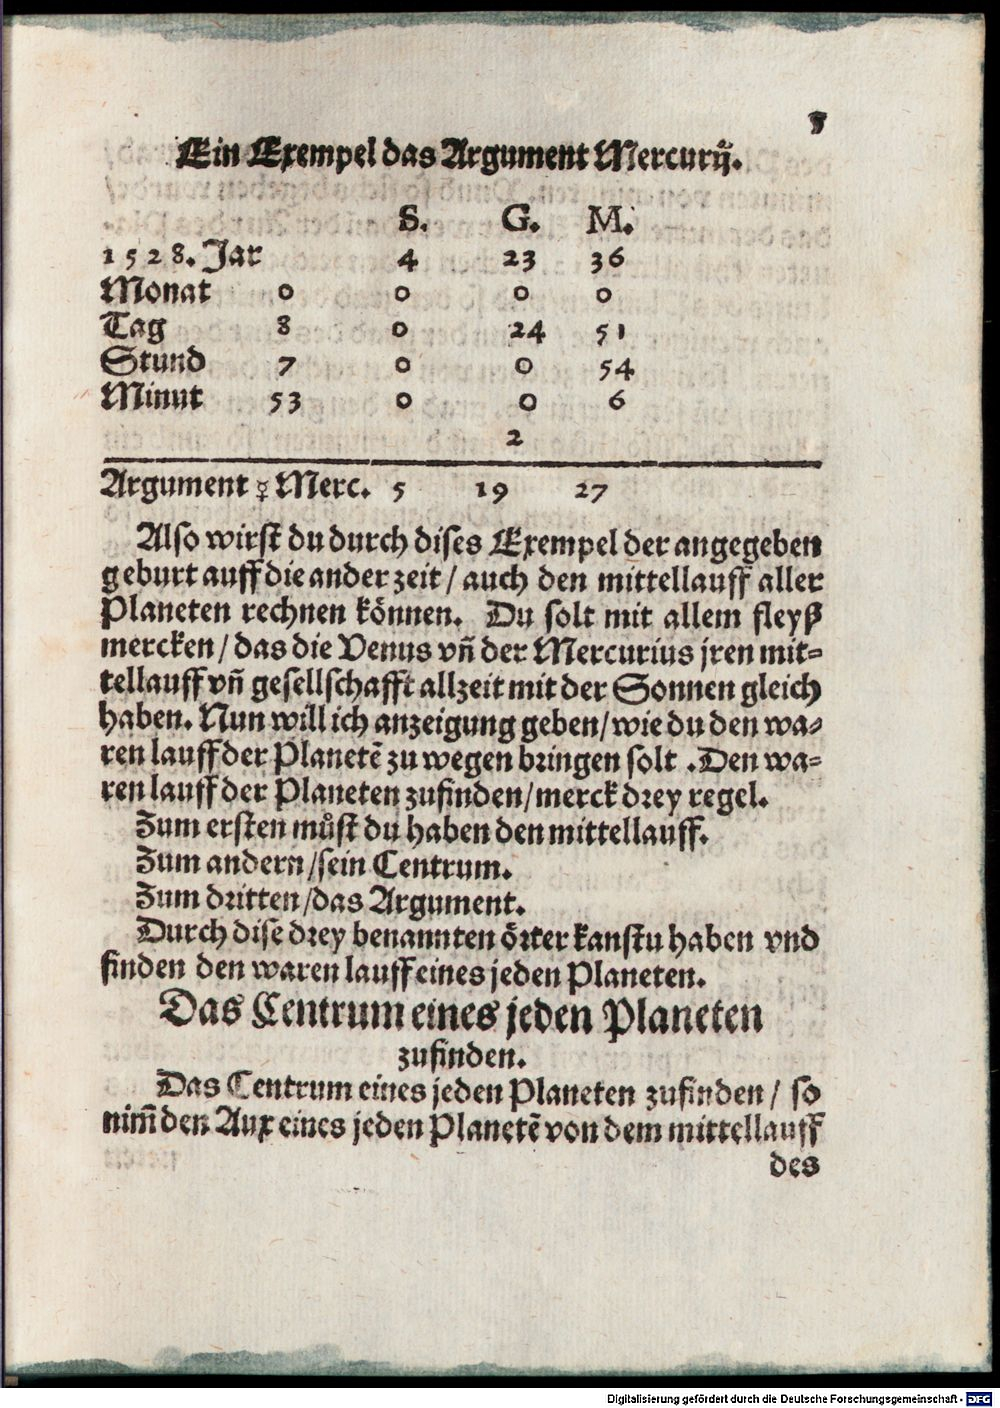 5
Ein Exempel das Argument Mercurij.
S. G. M.
1528. Jar 4 23 36
Monat 0 0 0 0
Tag 8 0 24 51
Stund 7 0 0 54
Minut 53 0 0 6
2
Argument ☿ Merc. 5 19 27
Also wirst du durch dises Exempel der angegeben
geburt auff die ander zeit / auch den mittellauff aller
Planeten rechnen können. Du solt mit allem fleyß
mercken / das die Venus vñ der Mercurius jren mit-
tellauff vñ gesellschafft allzeit mit der Sonnen gleich
haben. Nun will ich anzeigung geben / wie du den wa-
ren lauff der Planetē zu wegen bringen solt . Den wa-
ren lauff der Planeten zufinden / merck drey regel.
Zum ersten můst du haben den mittellauff.
Zum andern / sein Centrum.
Zum dritten / das Argument.
Durch dise drey benannten örter kanstu haben vnd
finden den waren lauff eines jeden Planeten.
Das Centrum eines jeden Planeten
zufinden.
Das Centrum eines jeden Planeten zufinden / so
nim̄ den Aux eines jeden Planetē von dem mittellauff
des
Digitalisierung gefördert durch die Deutsche Forschungsgemeinschaft - DFG